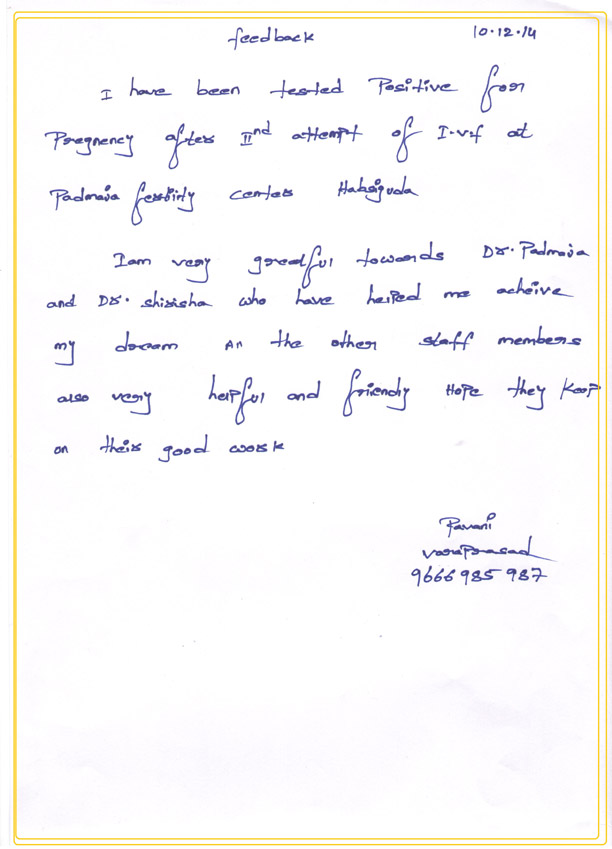 feedback 10.12.14
I have been tested Positive from
Pregnancy after IInd attempt of I.vf at
Padmaja fertility center Habsiguda
I am very greatful towards Dr. Padmaja
and Dr. shirisha who have helped me acheive
my dream An the other staff members
also very helpful and friendly Hope they keep
on their good work
Pavani
varaprasad
9666985987